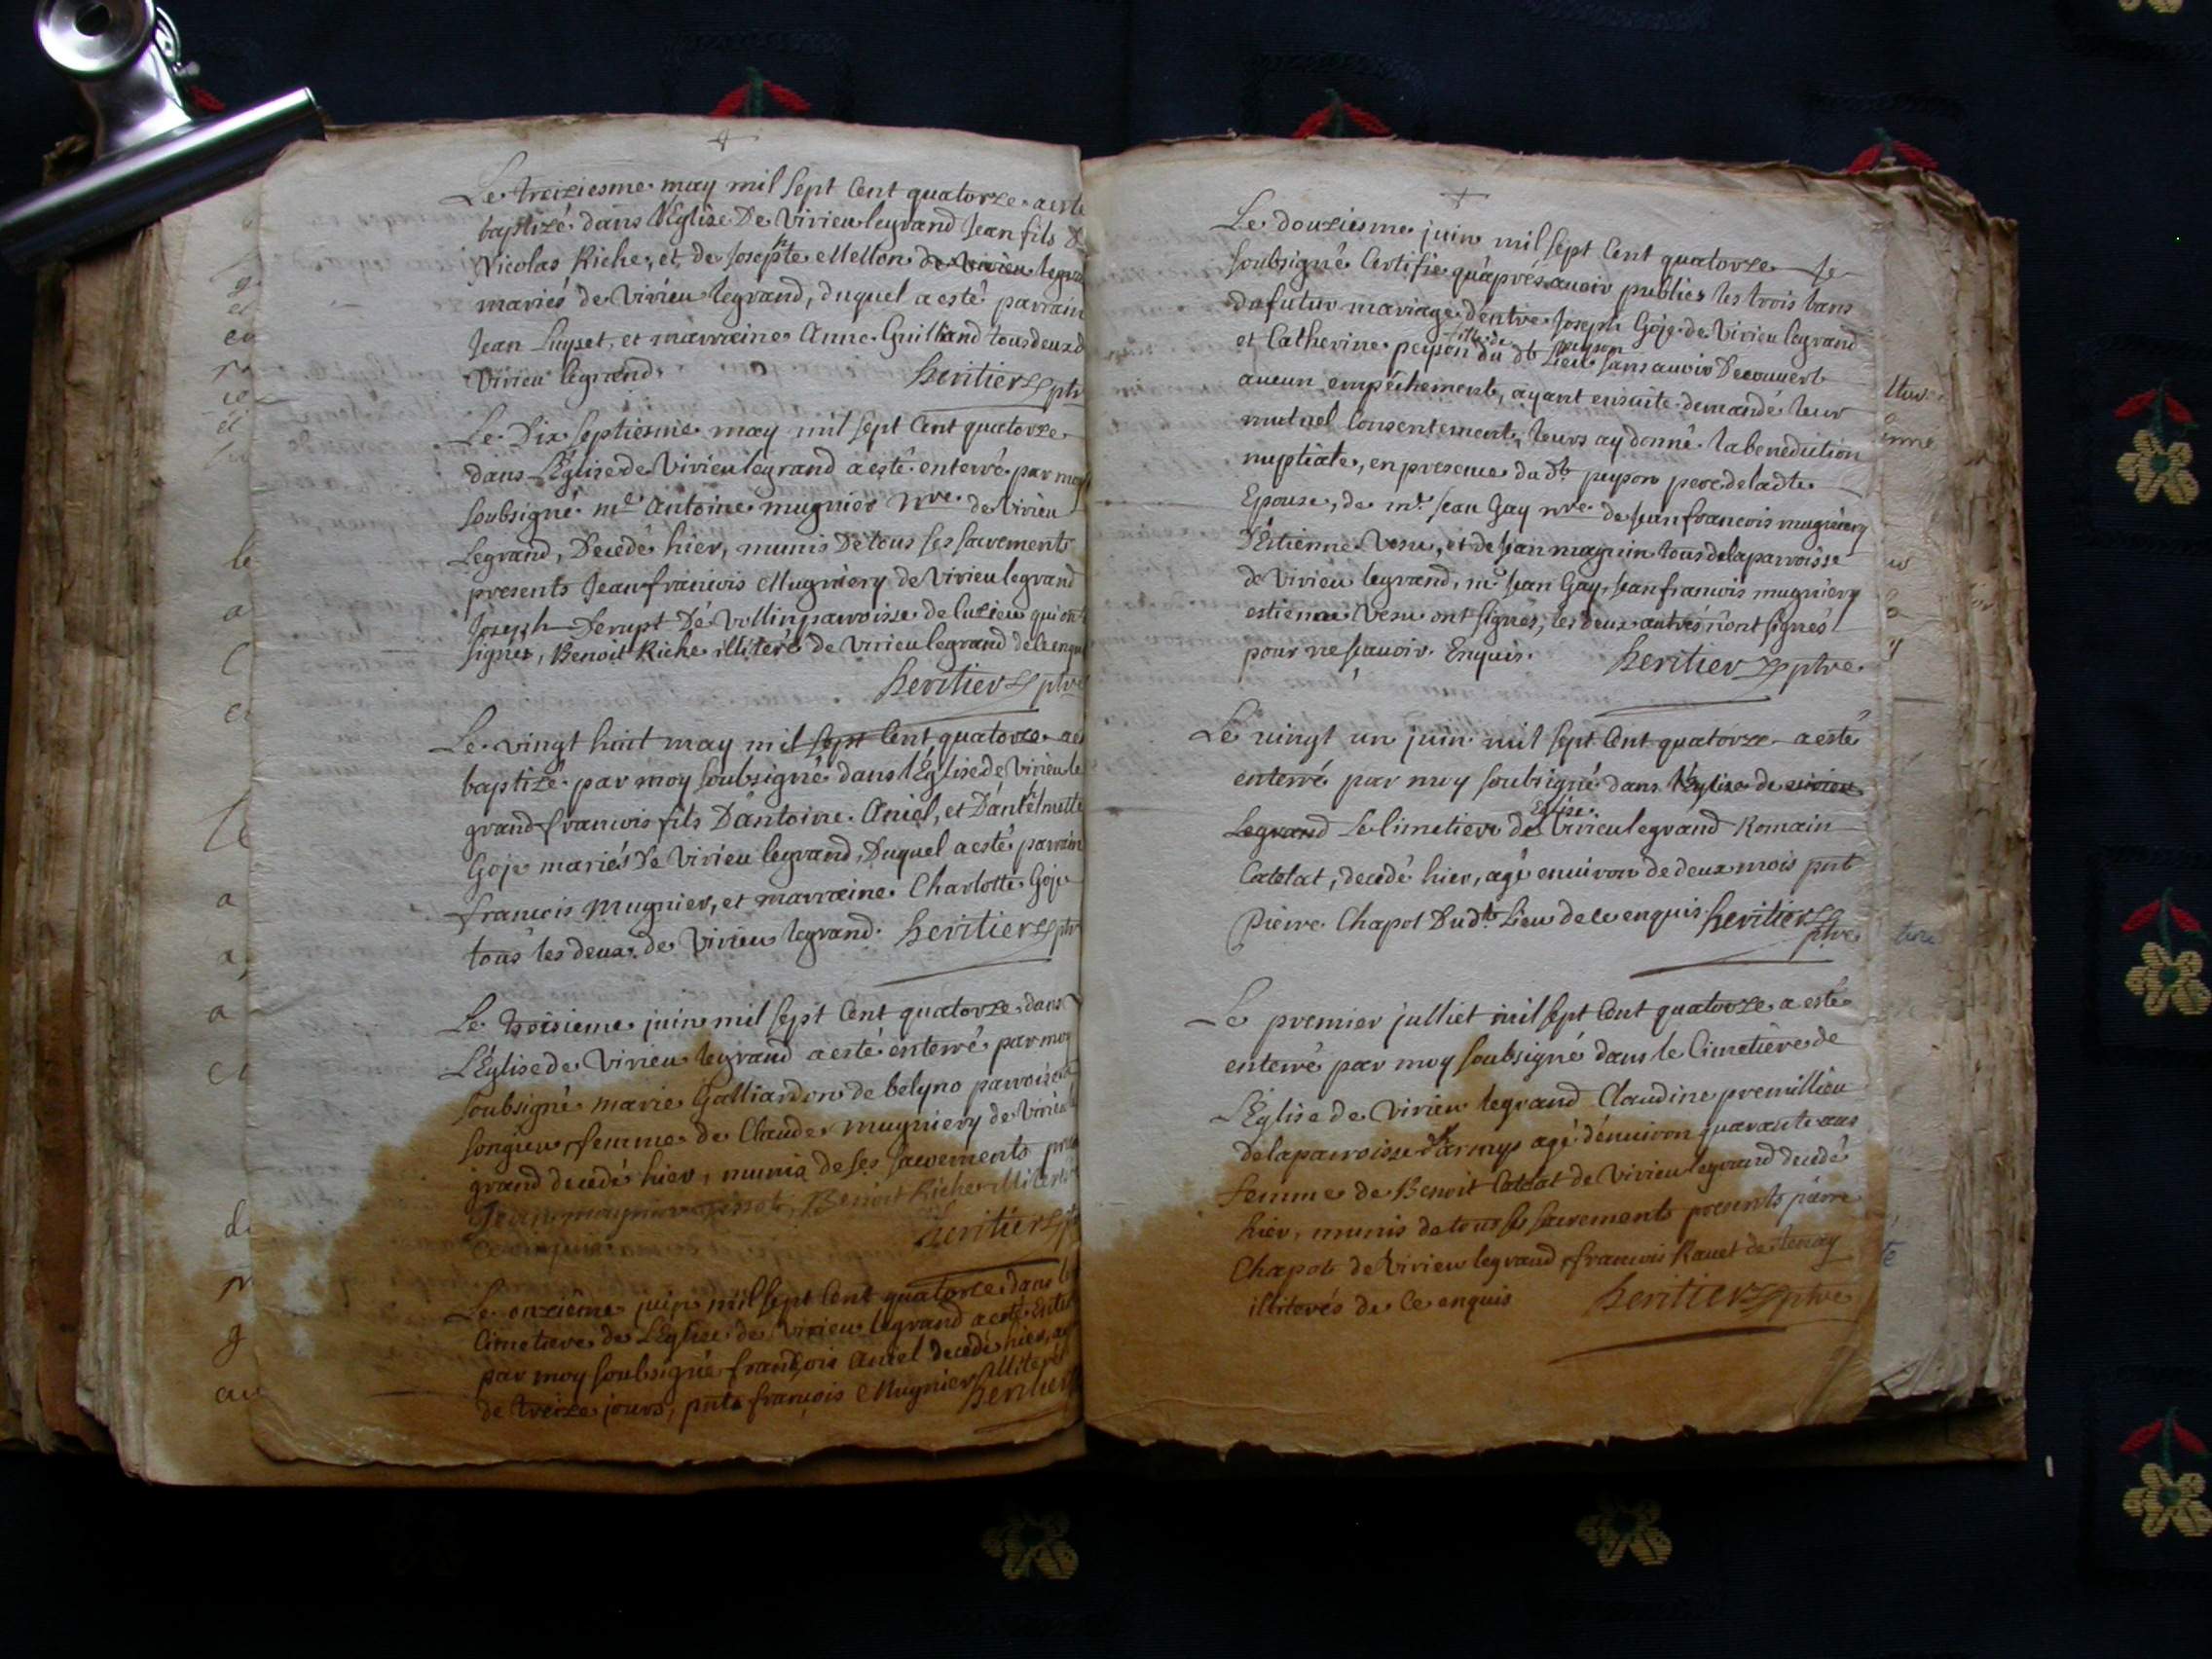 Le treiziesme may mil sept Cent quatorze a esté
baptizé dans l'Eglise De Virieu legrand Jean fils D
Nicolas Riche, et de Josephte Mellon de Virieu legra
mariés de Virieu legrand, duquel a esté parrain
Jean Luyset, et marraine Anne Guilliand tous deux d
Virieu legrand. heritier ptr
Le Dix septiesme may mil sept Cent quatorze
dans L'Eglise de Virieu legrand a esté enterré par moy
soubsigné mr Antoine mugnier Nre de Virieu
Legrand, Decedé hier, munis De tous ses sacrements
presents Jean francois Mugniery de Virieu legrand
Joseph Derupt De Vollin parroisse de luzieu qui ont
signés, Benoit Riche illiteré de Virieu legrand de ce enqu
heritier ptre
Le vingt huit may mil sept Cent quatorze a e
baptizé par moy soubsigné dans l'Eglise de Virieu le
grand francois fils D'antoine Aniel, et D'anthelmette
Goje mariés De Virieu legrand, Duquel a esté parrain
francois Mugnier, et marraine Charlotte Goje
tous les deux de Virieu legrand. heritier ptr
Le troisieme juin mil sept Cent quatorze dans
L'Eglise de Virieu legrand a esté enterré par moy
soubsigné marie Galliardon de belyno parroisse
songieu femme de Claude mugniery de Virieu
grand decedé hier, munis de ses sacrements
Benoit Riche
heritier
Le onziême juin mil sept Cent quatorze dans le
Cimetiere de L'Eglise de Virieu legrand a esté enter
par moy soubsigné françois Aniel decedé hier, a
de treize jours, pnts françois Mugnier illiteré
heritier
Le douziesme juin mil sept Cent quatorze Je
soubsigné Certifie qu'aprés avoir publiés les trois bans
du futur mariage d'entre Joseph Goje de Virieu legrand
fille de peyson
et Catherine peyson du dt Lieu sans avoir Decouvert
aucun empêchement, ayant ensuite demandé leur
mutuel Consentement, leurs ay donné la benediction
nuptiale, en presence du dt peyson pere de ladte
Epouse, de mr Jean Gay nre de Jean francois mugniery
D'Estienne Vesu, et de Jean magnin tous de la parroisse
de Virieu legrand, mr Jean Gay, Jean francois mugniery
estienne Vesu ont signés, les deux autrés n'ont signés
pour ne scavoir. Enquis. heritier ptre
Le vingt un juin mil sept Cent quatorze a esté
enterré par moy soubsigné dans l'Eglise de virieu
Eglise
Legrand Le Cimetiere de Virieu legrand Romain
Catelat, decedé hier, agé environ de deux mois pnt
Pierre Chapot Du dt Lieu de ce enquis heritier
ptre
Le premier julliet mil sept Cent quatorze a esté
enterré par moy soubsigné dans le Cimetière de
L'Eglise de Virieu legrand Claudine premillieu
de la parroisse D'armys agé d'environ quarante ans
femme de Benoit Catelat de Virieu legrand decedé
hier, munis de tous ses sacrements presents pierre
Chapot de Virieu legrand, francois Ravet de tenay
illiterés de Ce enquis heritier ptre